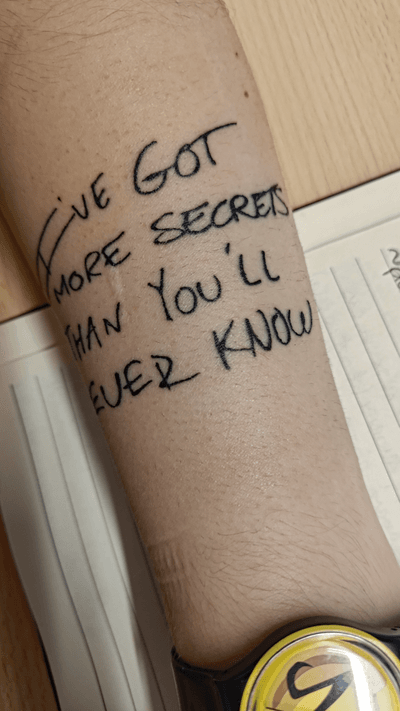 I'VE GOT
MORE SECRETS
THAN YOU'LL
EVER KNOW